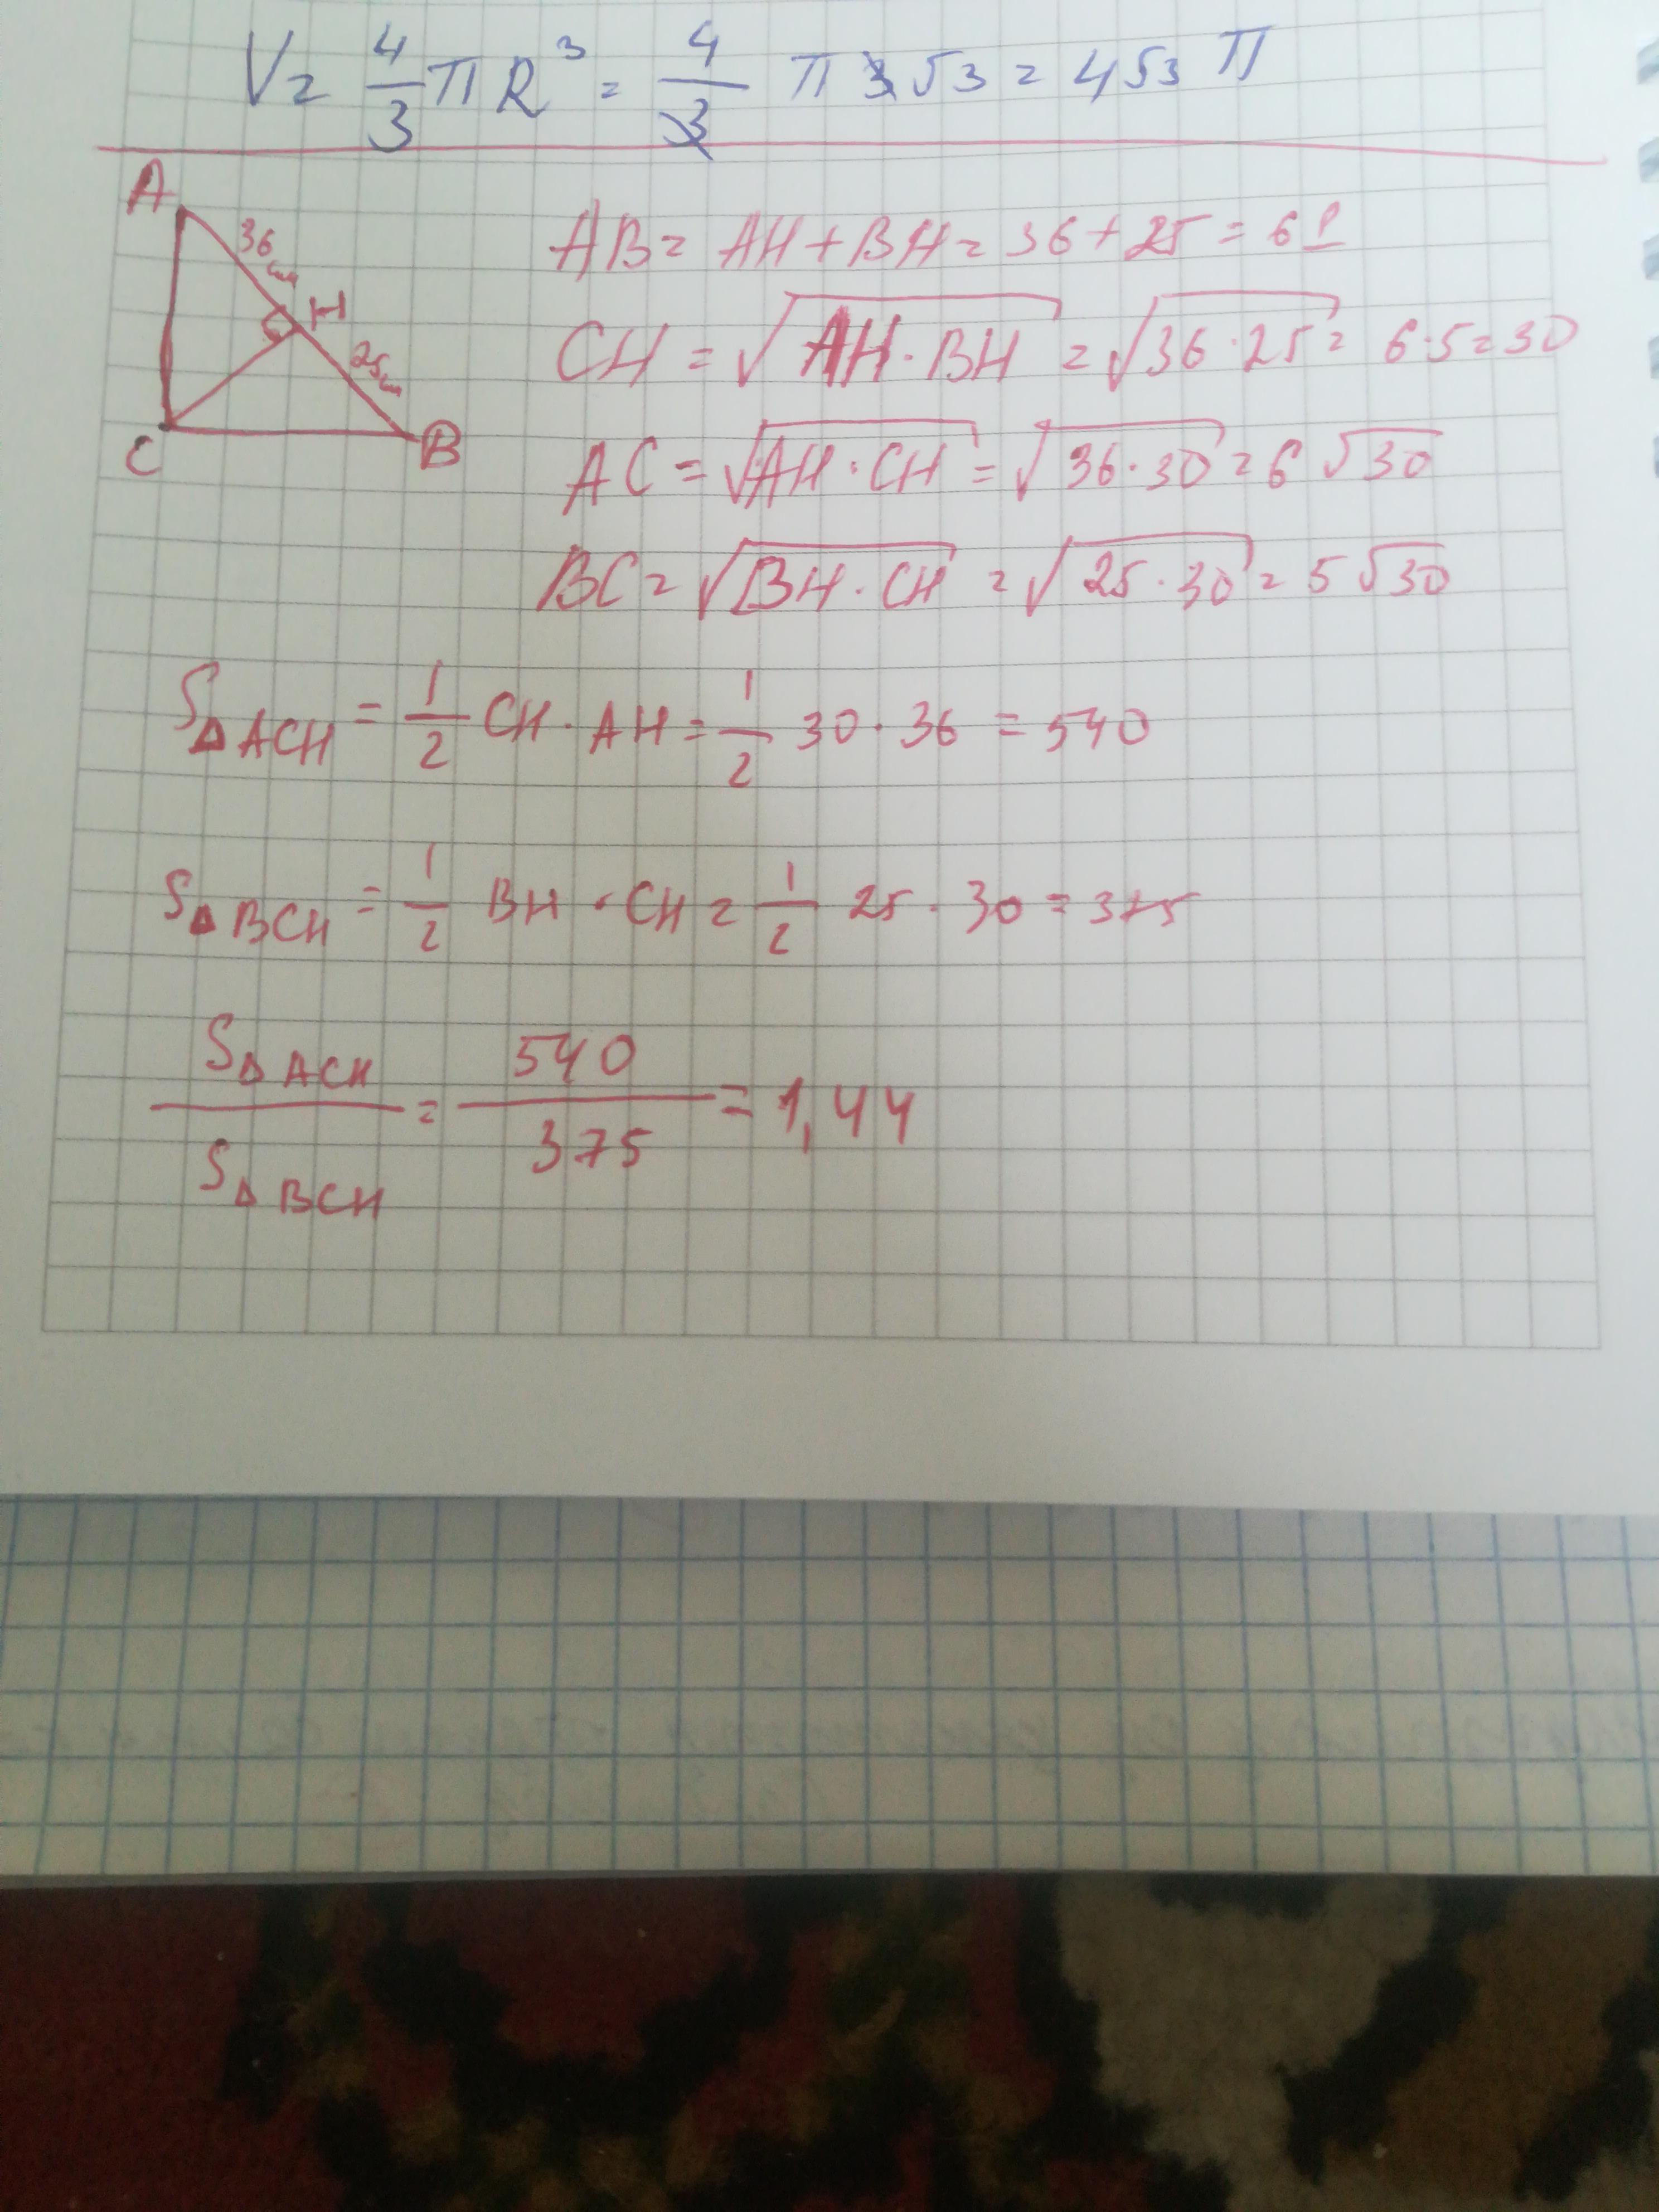 V = 4/3 π R³ = 4/3 π 3 √3 = 4√3 π
A
36 cm
H
25 cm
C
B
AB = AH + BH = 36 + 25 = 61
CH = √(AH · BH) = √(36 · 25) = 6 · 5 = 30
AC = √(AH · CH) = √(36 · 30) = 6 √30
BC = √(BH · CH) = √(25 · 30) = 5 √30
S△ACH = 1/2 CH · AH = 1/2 30 · 36 = 540
S△BCH = 1/2 BH · CH = 1/2 25 · 30 = 375
S△ACH / S△BCH = 540 / 375 = 1,44